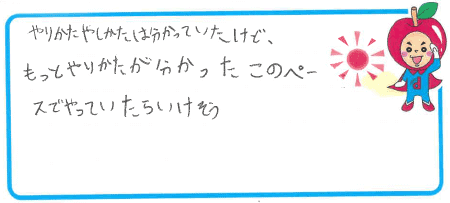 やりかたやしかたは分かっていたけど、
もっとやりかたが分かった このペー
スでやっていたらいけそう